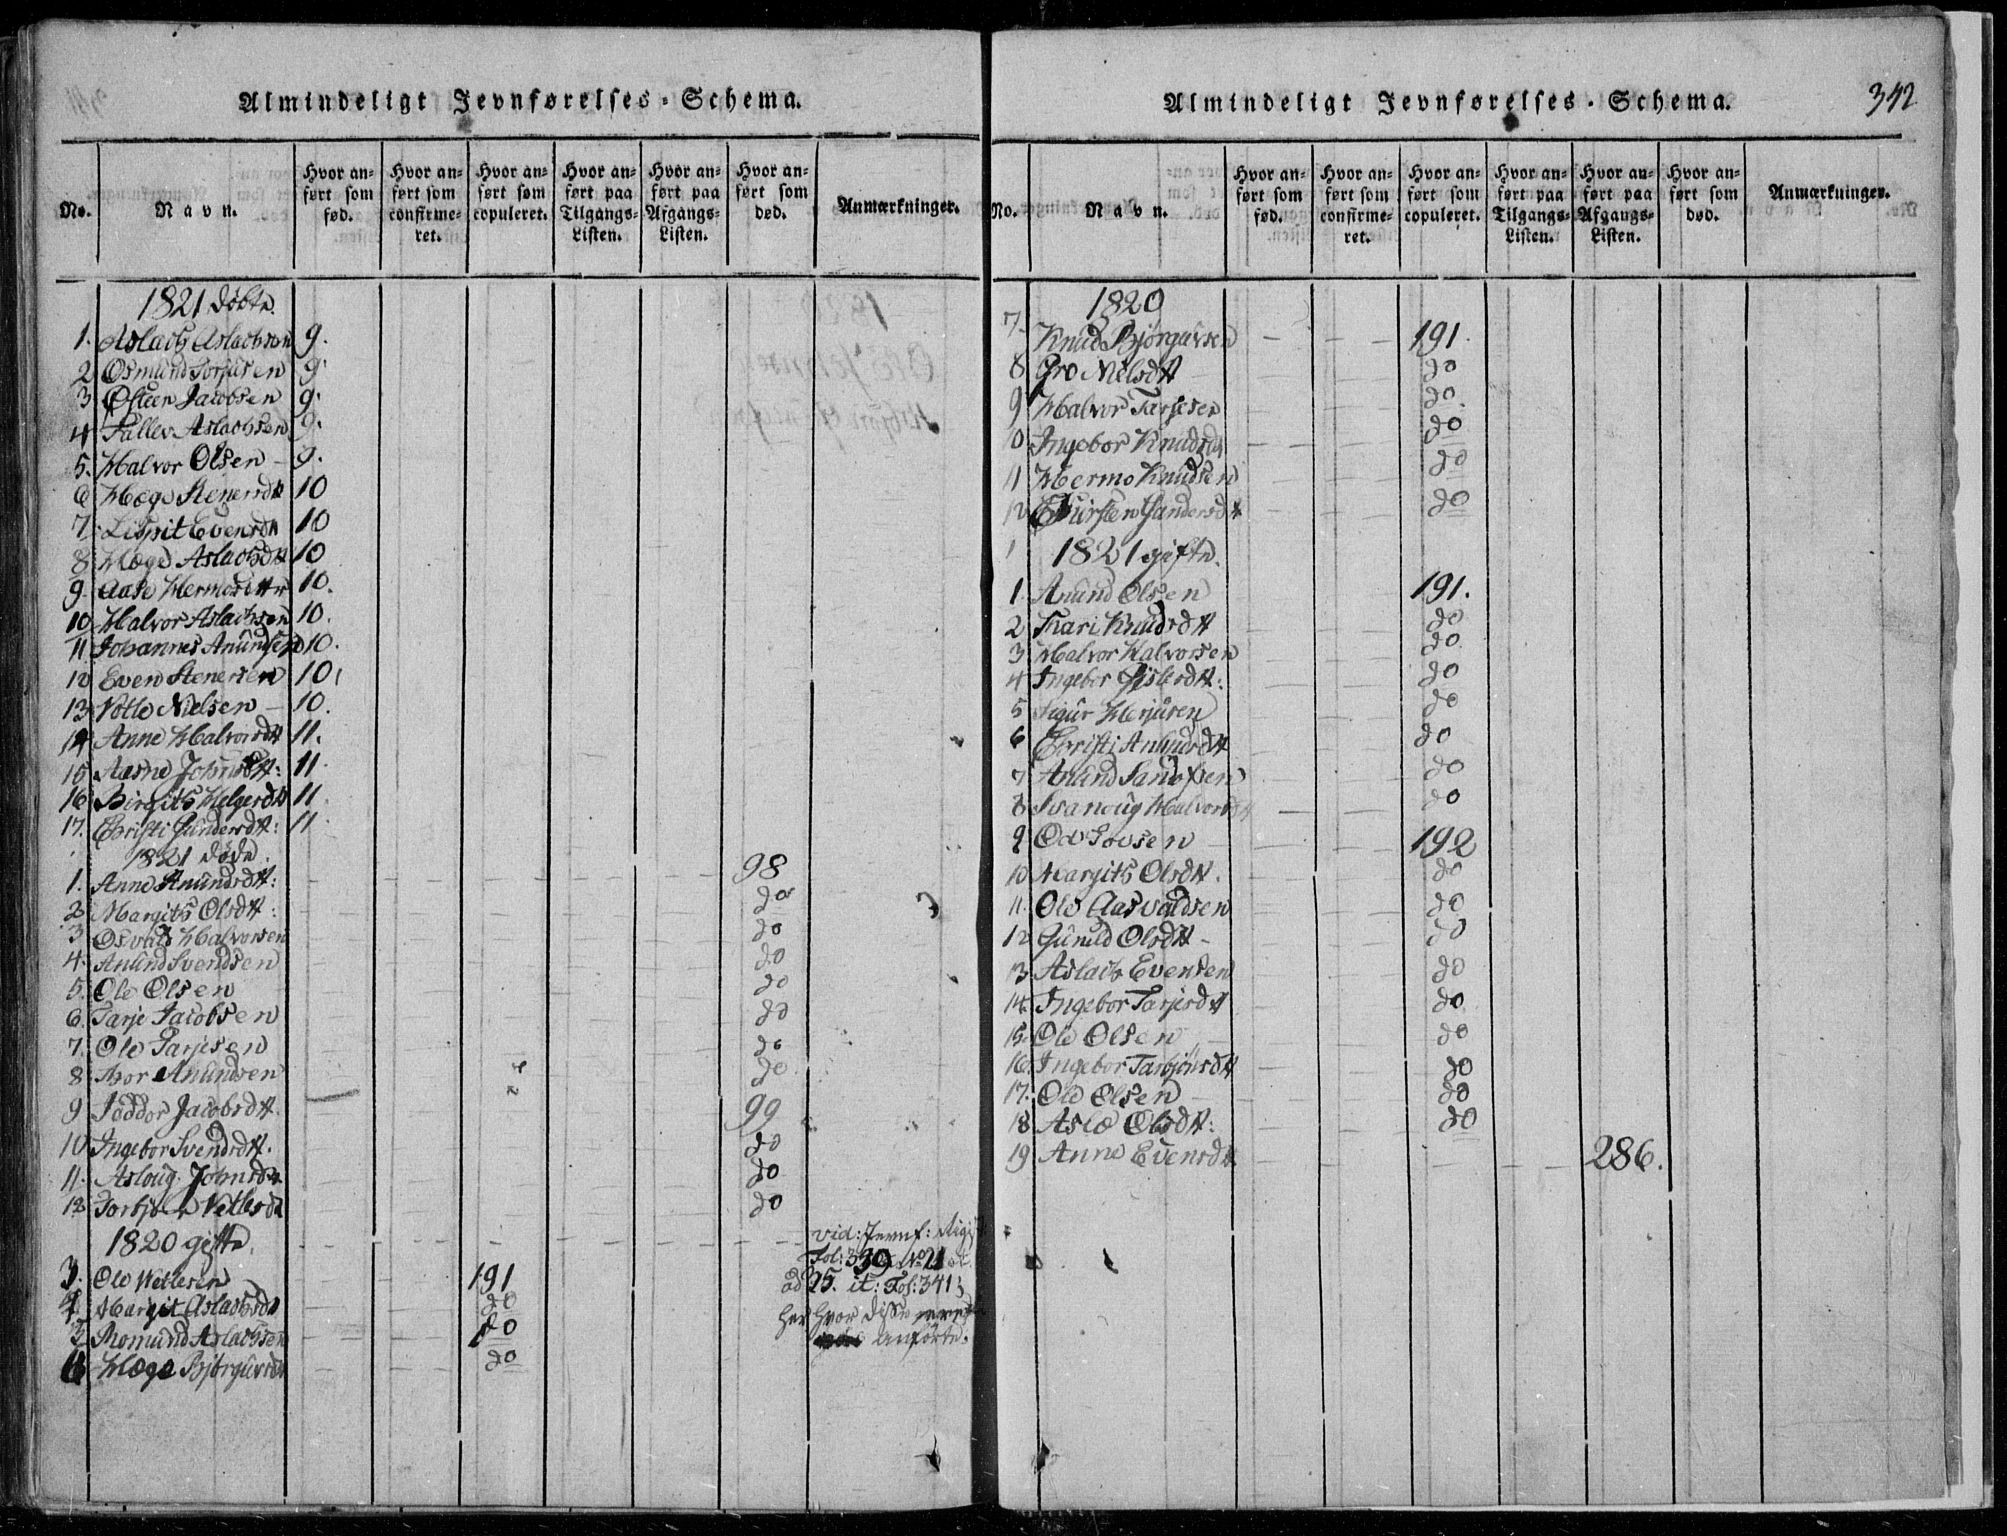 Almindeligt Jevnførelses-Schema.
No.
Navn.
Hvor anført som fød.
Hvor anført som confirmeret.
Hvor anført som copuleret.
Hvor anført paa Tilgangs-Listen.
Hvor anført paa Afgangs-Listen.
Hvor anført som død.
Anmærkninger.
1821 døbte.
1. Aslach Aslachsen 9.
2 Osmund Torjusen 9.
3 Østeen Jacobsen 9.
4 Tallev Aslachsen 9.
5. Halvor Olsen 9.
6 Hæge Stenersdtt 10
7. Lispit Evensdtt 10
8 Hæge Aslachsdtt 10
9. Aase Hermosdttr 10.
10 Halvor Aslachsen 10.
11 Johannes Anundsen 10.
12 Even Stenersen 10.
13 Votle Nielsen 10.
14 Anne Halvorsdtt 11.
15 Aasne Johnsdtt: 11.
16 Birgith Helgesdtt 11.
17. Christi Gundersdtt: 11.
1821 døde.
1. Anne Anundsdtt: 98
2 Margith Olsdtt: do
3 Osvald Halvorsen do
4. Anund Svendsen do
5. Ole Olsen do
6. Tarje Jacobsen do
7. Ole Tarjesen do
8 Thor Anundsen do
9 Joddor Jacobsdtt. 99
10. Ingebor Svendsdtt. do
11. Asloug Johnsdtt do
12 Torbjør Vetlesdt do
1820 gifte.
vid: Jevnf: Regi
Fol: 339 No 21
3. Ole Wetlesen 191
ad 25. it: Fol: 341;
4 Margit Aslachsdtt do
her hvor disse
5 Romund Aslachsen do
anførte.
6 Hæge Bjørguvsdt do
Almindeligt Jevnførelses-Schema.
342
No.
Navn.
Hvor anført som fød.
Hvor anført som confirmeret.
Hvor anført som copuleret.
Hvor anført paa Tilgangs-Listen.
Hvor anført paa Afgangs-Listen.
Hvor anført som død.
Anmærkninger.
1820
7. Knud Bjørguvsen 191.
8 Gro Nielsdtt do
9 Halvor Tarjesen do.
10 Ingebor Knudsdt do
11 Hermo Knudsen do
12 Kirsten Gundersdtt do
1821 gifte.
1. Anund Olsen 191.
2 Kari Knudsdtt do
3 Halvor Halvorsen do.
4 Ingebor Gislesdtt: do
5 Sigur Herjusen do
6 Christi Anundsdtt do
7 Anund Sandofsen do
8 Svanoug Halvorsdtt do
9 Od Tovsen 192
10 Margith Olsdtt. do
11. Ole Aasvaldsen do
12 Gunild Olsdtt do
13 Aslach Evensen do
14. Ingebor Tarjesdtt do
15. Ole Olsen do
16. Ingebor Tarbjørsdtt do
17. Ole Olsen do
18 Aslæ Olsdtt: do
19 Anne Evensdtt 286.